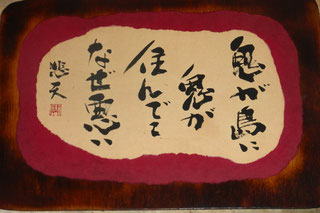 鬼が島に
鬼が
住んでて
なぜ悪い
悲天